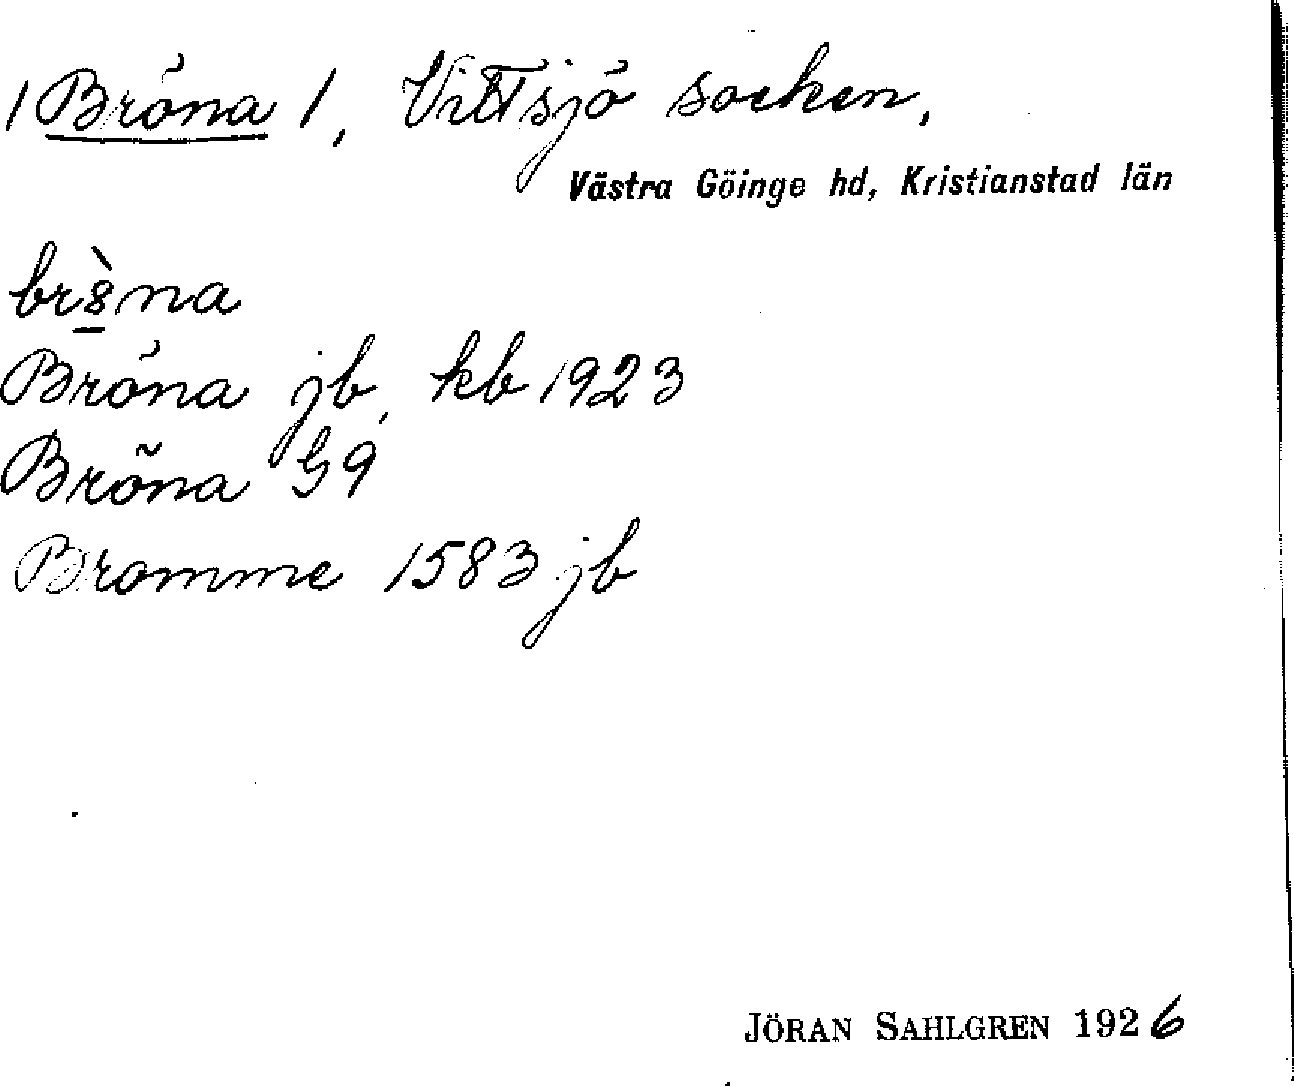 / Bröna /, Vittsjö socken,
Västra Göinge hd, Kristianstad län
br8̱̀na
Bröna jb, kb 1923
Bröna G9
Bromme 1583 jb
JÖRAN SAHLGREN 1926